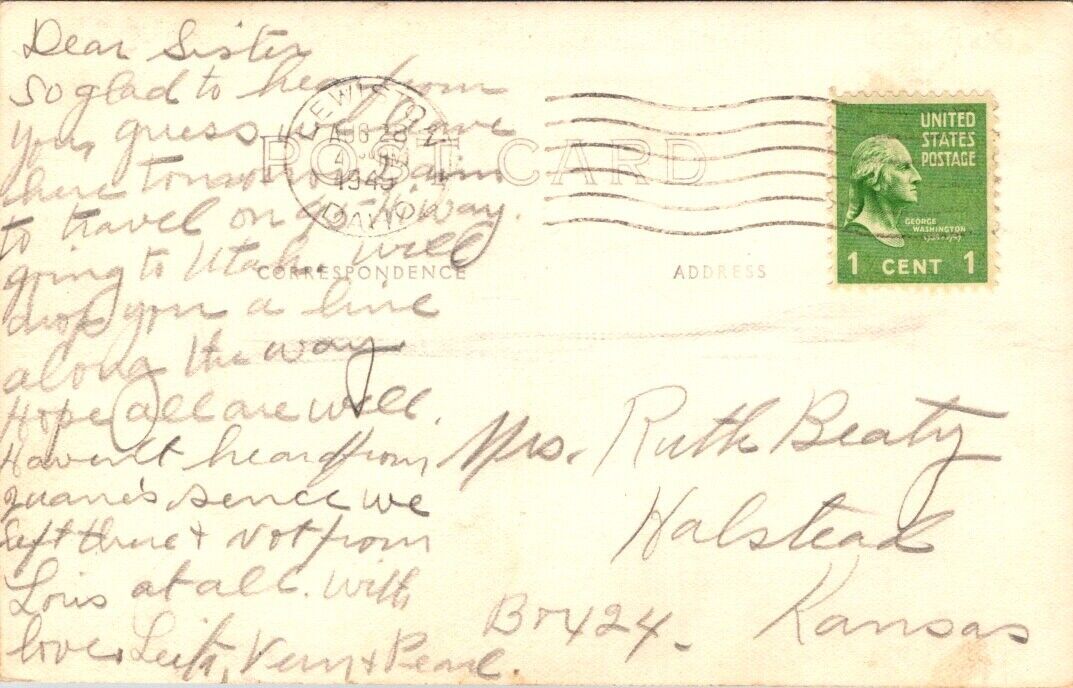 Dear Sister
So glad to hear from
you, guess we leave
here tomorrow am
to travel on y way.
going to Utah. Will
drop you a line
along the way.
Hope all are well.
Haven't heard from
Juane's sence we
left there & not from
Lois at all. With
love, Leita, Vern & Pearl.
LEWISTON
AUG 28
4 PM
1945
IDAHO
POST CARD
CORRESPONDENCE
ADDRESS
UNITED
STATES
POSTAGE
GEORGE
WASHINGTON
1 CENT 1
Mrs. Ruth Beaty
Halstead
Kansas
Box 424.